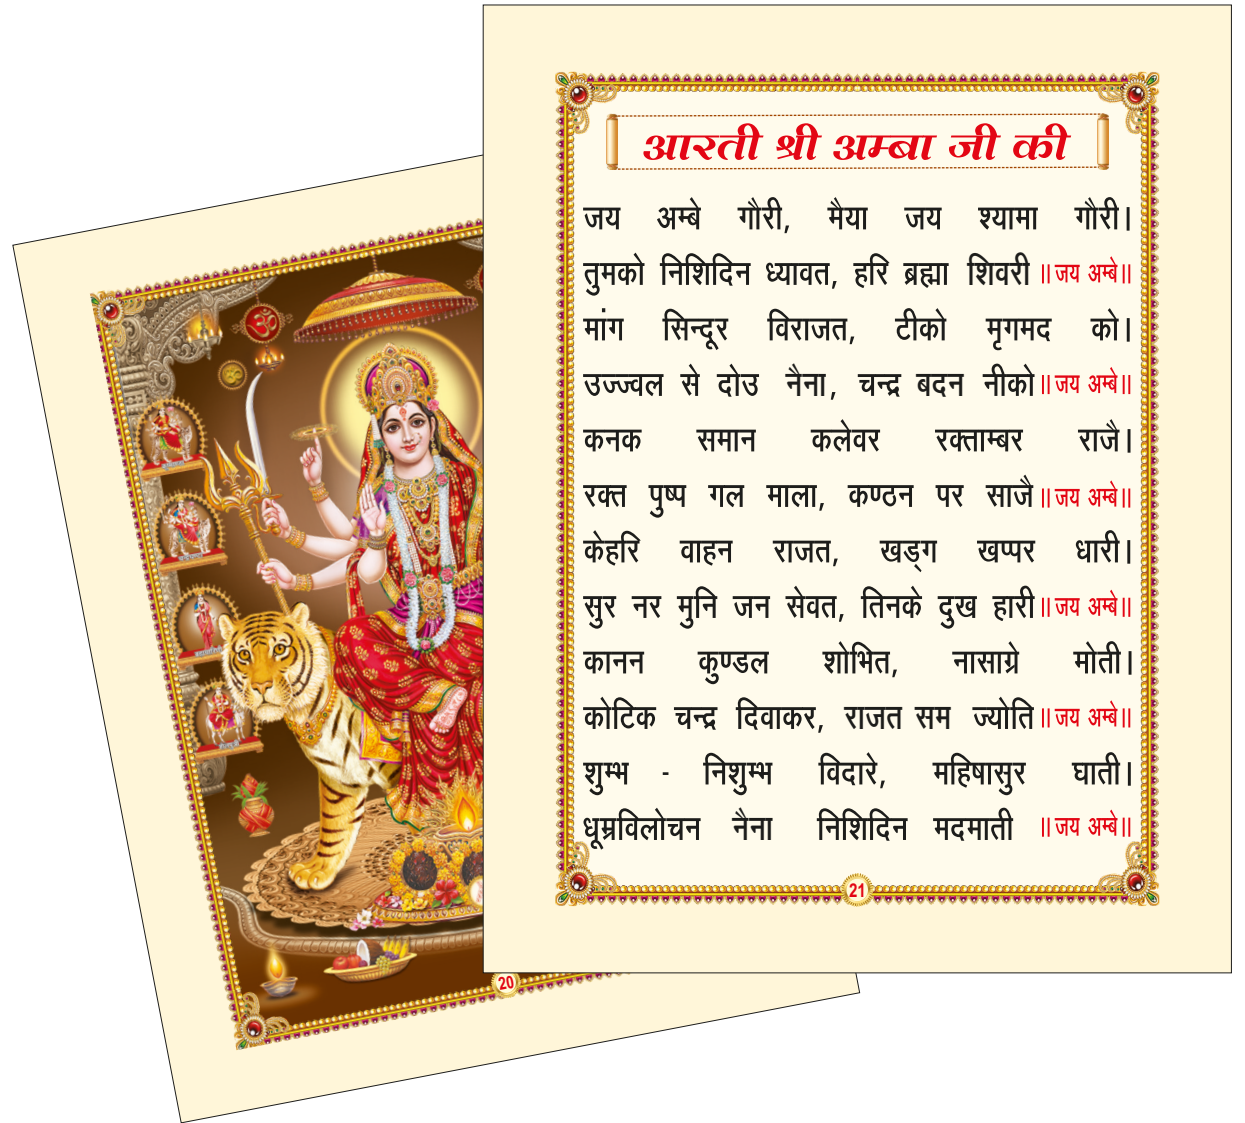 आरती श्री अम्बा जी की
जय अम्बे गौरी, मैया जय श्यामा गौरी।
तुमको निशिदिन ध्यावत, हरि ब्रह्मा शिवरी ॥जय अम्बे॥
मांग सिन्दूर विराजत, टीको मृगमद को।
उज्ज्वल से दोउ नैना, चन्द्र बदन नीको ॥जय अम्बे॥
कनक समान कलेवर रक्ताम्बर राजै।
रक्त पुष्प गल माला, कण्ठन पर साजै ॥जय अम्बे॥
केहरि वाहन राजत, खड्ग खप्पर धारी।
सुर नर मुनि जन सेवत, तिनके दुख हारी ॥जय अम्बे॥
कानन कुण्डल शोभित, नासाग्रे मोती।
कोटिक चन्द्र दिवाकर, राजत सम ज्योति ॥जय अम्बे॥
शुम्भ - निशुम्भ विदारे, महिषासुर घाती।
धूम्रविलोचन नैना निशिदिन मदमाती ॥जय अम्बे॥
21
ॐ
20